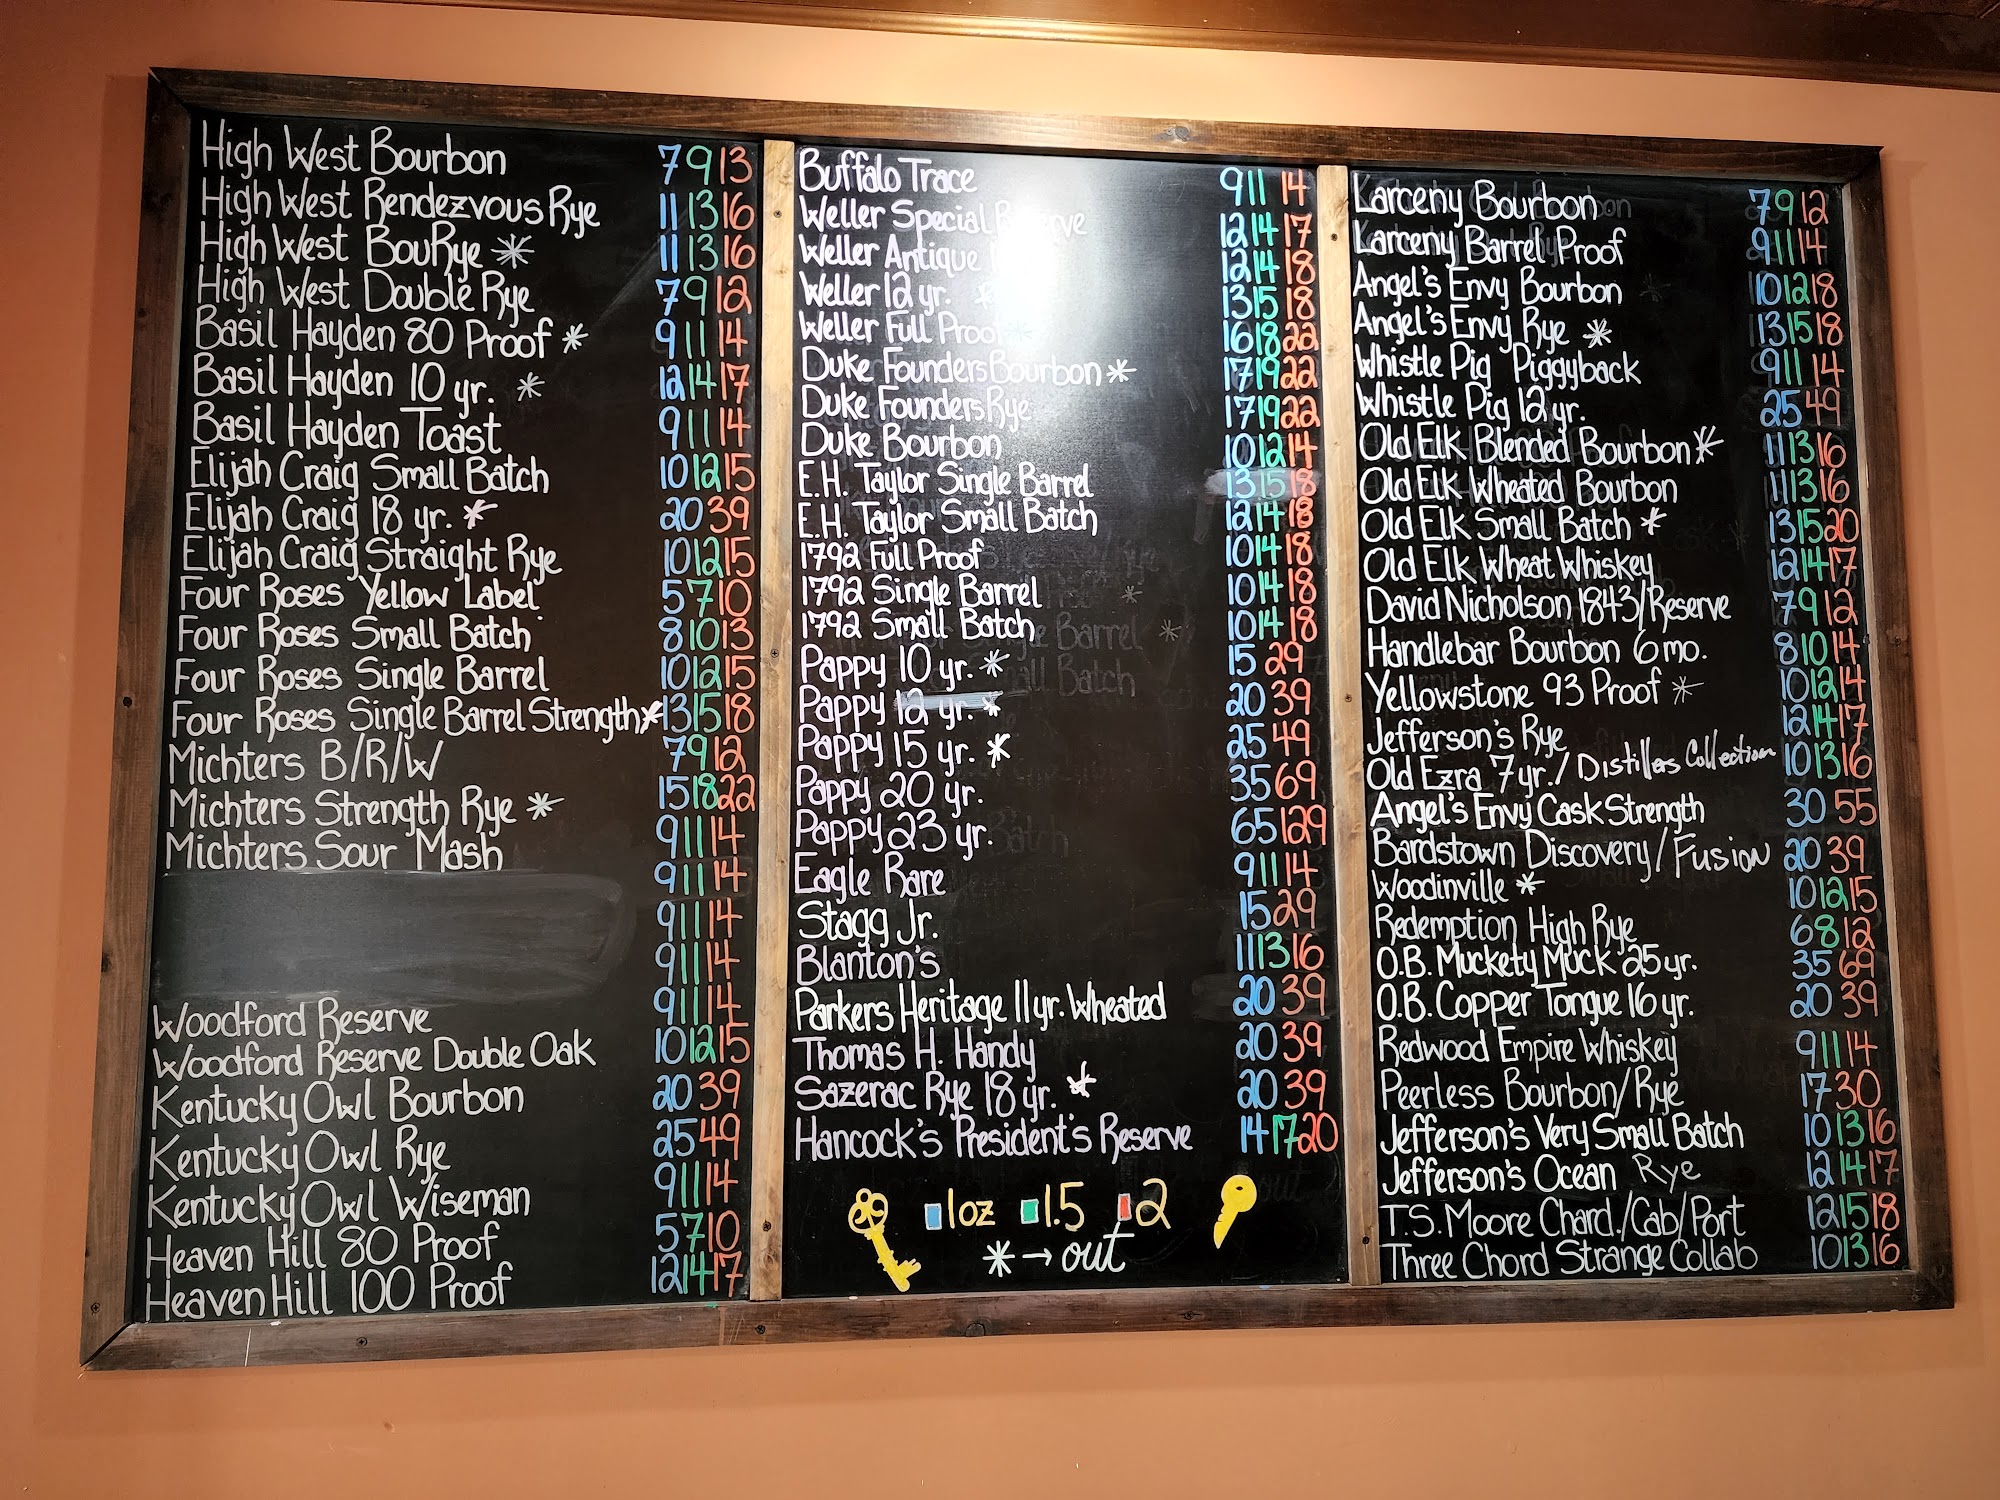 High West Bourbon 7 9 13
High West Rendezvous Rye 11 13 16
High West BouRye * 11 13 16
High West Double Rye 7 9 12
Basil Hayden 80 Proof * 9 11 14
Basil Hayden 10 yr. * 12 14 17
Basil Hayden Toast 9 11 14
Elijah Craig Small Batch 10 12 15
Elijah Craig 18 yr. * 20 39
Elijah Craig Straight Rye 10 12 15
Four Roses Yellow Label 5 7 10
Four Roses Small Batch 8 10 13
Four Roses Single Barrel 10 12 15
Four Roses Single Barrel Strength * 13 15 18
Michters B/R/W 7 9 12
Michters Strength Rye * 15 18 22
Michters Sour Mash 9 11 14
9 11 14
9 11 14
9 11 14
Woodford Reserve 9 11 14
Woodford Reserve Double Oak 10 12 15
Kentucky Owl Bourbon 20 39
Kentucky Owl Rye 25 49
Kentucky Owl Wiseman 9 11 14
Heaven Hill 80 Proof 5 7 10
Heaven Hill 100 Proof 12 14 17
Buffalo Trace 9 11 14
Weller Special Reserve 12 14 17
Weller Antique 12 14 18
Weller 12 yr. * 13 15 18
Weller Full Proof * 16 18 22
Duke Founders Bourbon * 17 19 22
Duke Founders Rye 17 19 22
Duke Bourbon 10 12 14
E.H. Taylor Single Barrel 13 15 18
E.H. Taylor Small Batch 12 14 18
1792 Full Proof 10 14 18
1792 Single Barrel 10 14 18
1792 Small Batch 10 14 18
Pappy 10 yr. * 15 29
Pappy 12 yr. * 20 39
Pappy 15 yr. * 25 49
Pappy 20 yr. 35 69
Pappy 23 yr. 65 129
Eagle Rare 9 11 14
Stagg Jr. 15 29
Blanton's 11 13 16
Parkers Heritage 11 yr. Wheated 20 39
Thomas H. Handy 20 39
Sazerac Rye 18 yr. * 20 39
Hancock's President's Reserve 14 17 20
1oz 1.5 2
* → out
Larceny Bourbon 7 9 12
Larceny Barrel Proof 9 11 14
Angel's Envy Bourbon 10 12 18
Angel's Envy Rye * 13 15 18
Whistle Pig Piggyback 9 11 14
Whistle Pig 12 yr. 25 49
Old Elk Blended Bourbon * 11 13 16
Old Elk Wheated Bourbon 11 13 16
Old Elk Small Batch * 13 15 20
Old Elk Wheat Whiskey 12 14 17
David Nicholson 1843/Reserve 7 9 12
Handlebar Bourbon 6 mo. 8 10 14
Yellowstone 93 Proof * 10 12 14
Jefferson's Rye 12 14 17
Old Ezra 7 yr. / Distillers Collection 10 13 16
Angel's Envy Cask Strength 30 55
Bardstown Discovery / Fusion 20 39
Woodinville * 10 12 15
Redemption High Rye 6 8 12
O.B. Muckety Muck 25 yr. 35 69
O.B. Copper Tongue 16 yr. 20 39
Redwood Empire Whiskey 9 11 14
Peerless Bourbon/Rye 17 30
Jefferson's Very Small Batch 10 13 16
Jefferson's Ocean Rye 12 14 17
T.S. Moore Chard./Cab/Port 12 15 18
Three Chord Strange Collab 10 13 16